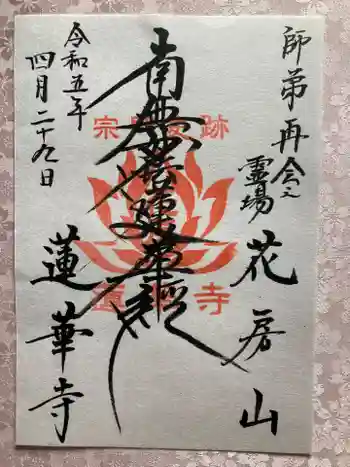 師弟再会之
霊場
花房山
南無妙法蓮華経
令和五年
四月二十九日
蓮華寺